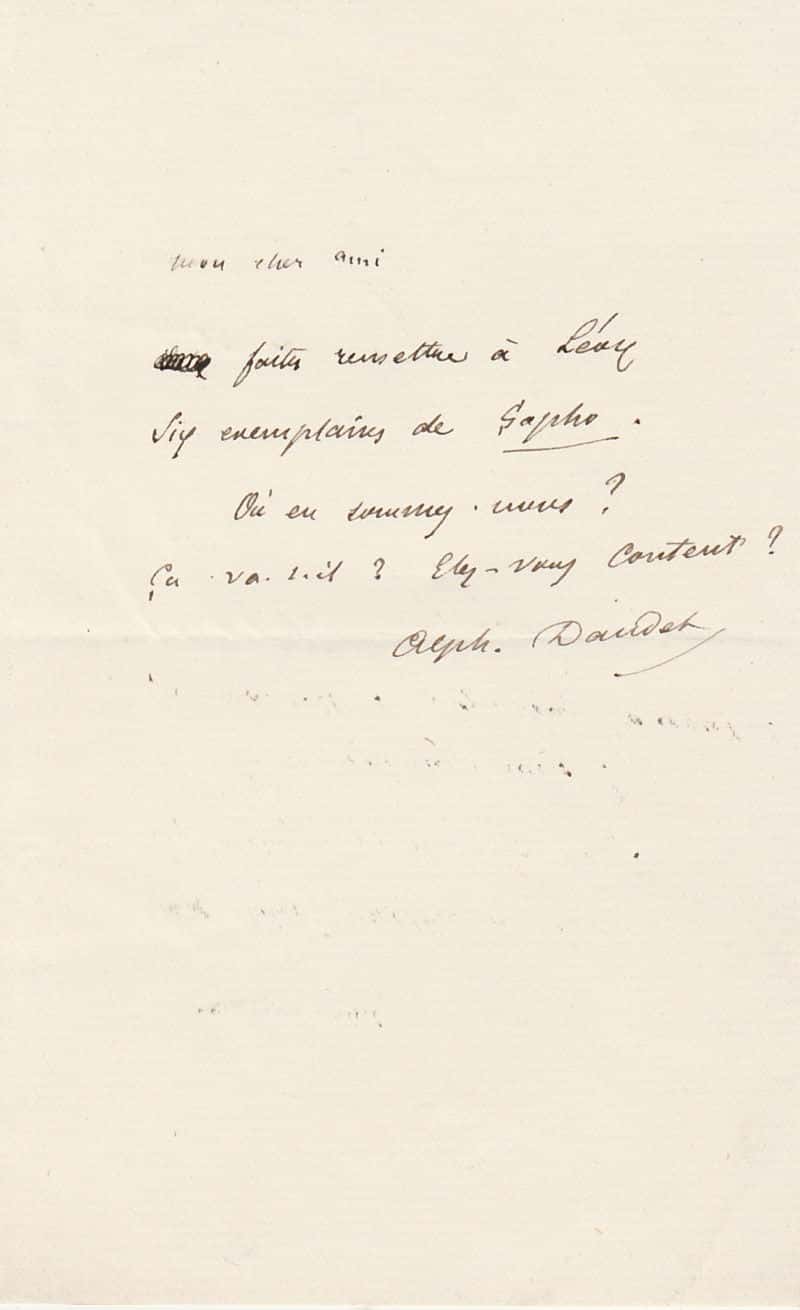 Mon cher ami
faites remettre à Lévy
Six exemplaires de Sapho.
Où en sommes-nous ?
Ça va-t-il ? Etes-vous content ?
Alph. Daudet